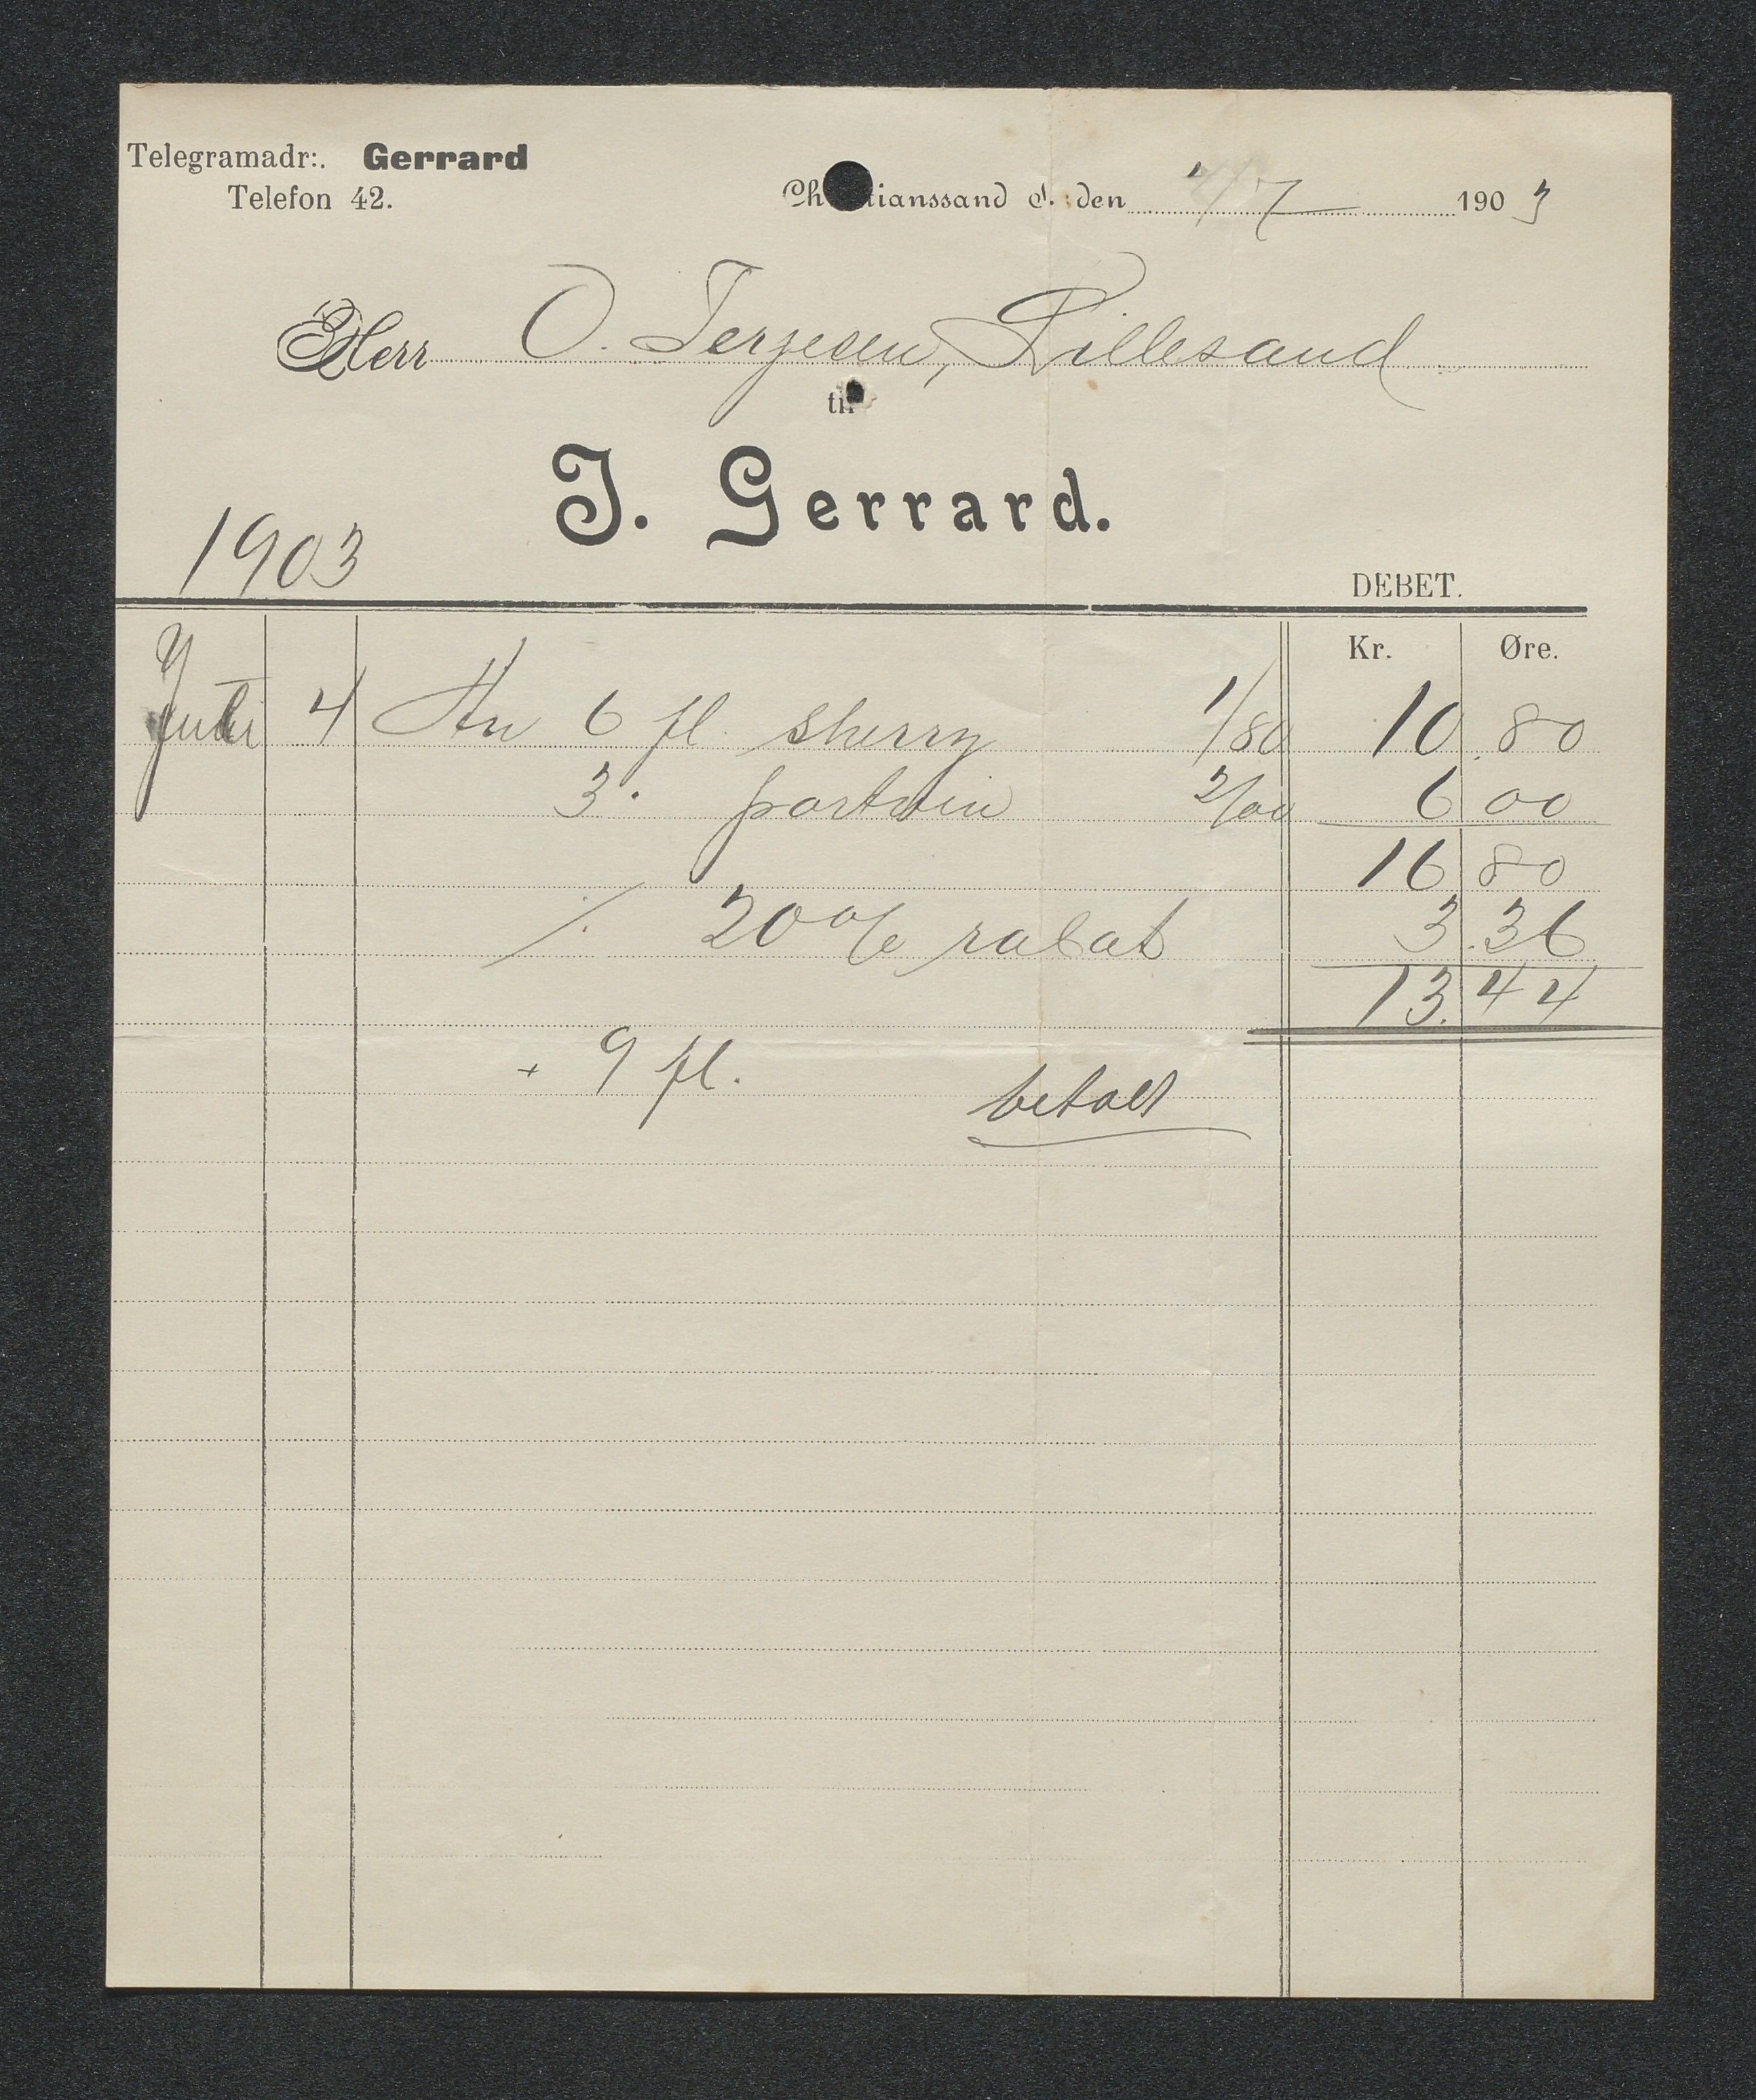 Telegramadr:. Gerrard
Telefon 42.
Ch tianssand S. den 4/7 1903
Herr O. Terjesen, Lillesand
til
J. Gerrard.
1903
DEBET.
Kr. Øre.
Juli 4 An 6 fl. sherry 1/80 10.80
3 " portvin 2/00 6 00
16 80
./. 20% rabat 3.36
13.44
+ 9 fl.
betalt